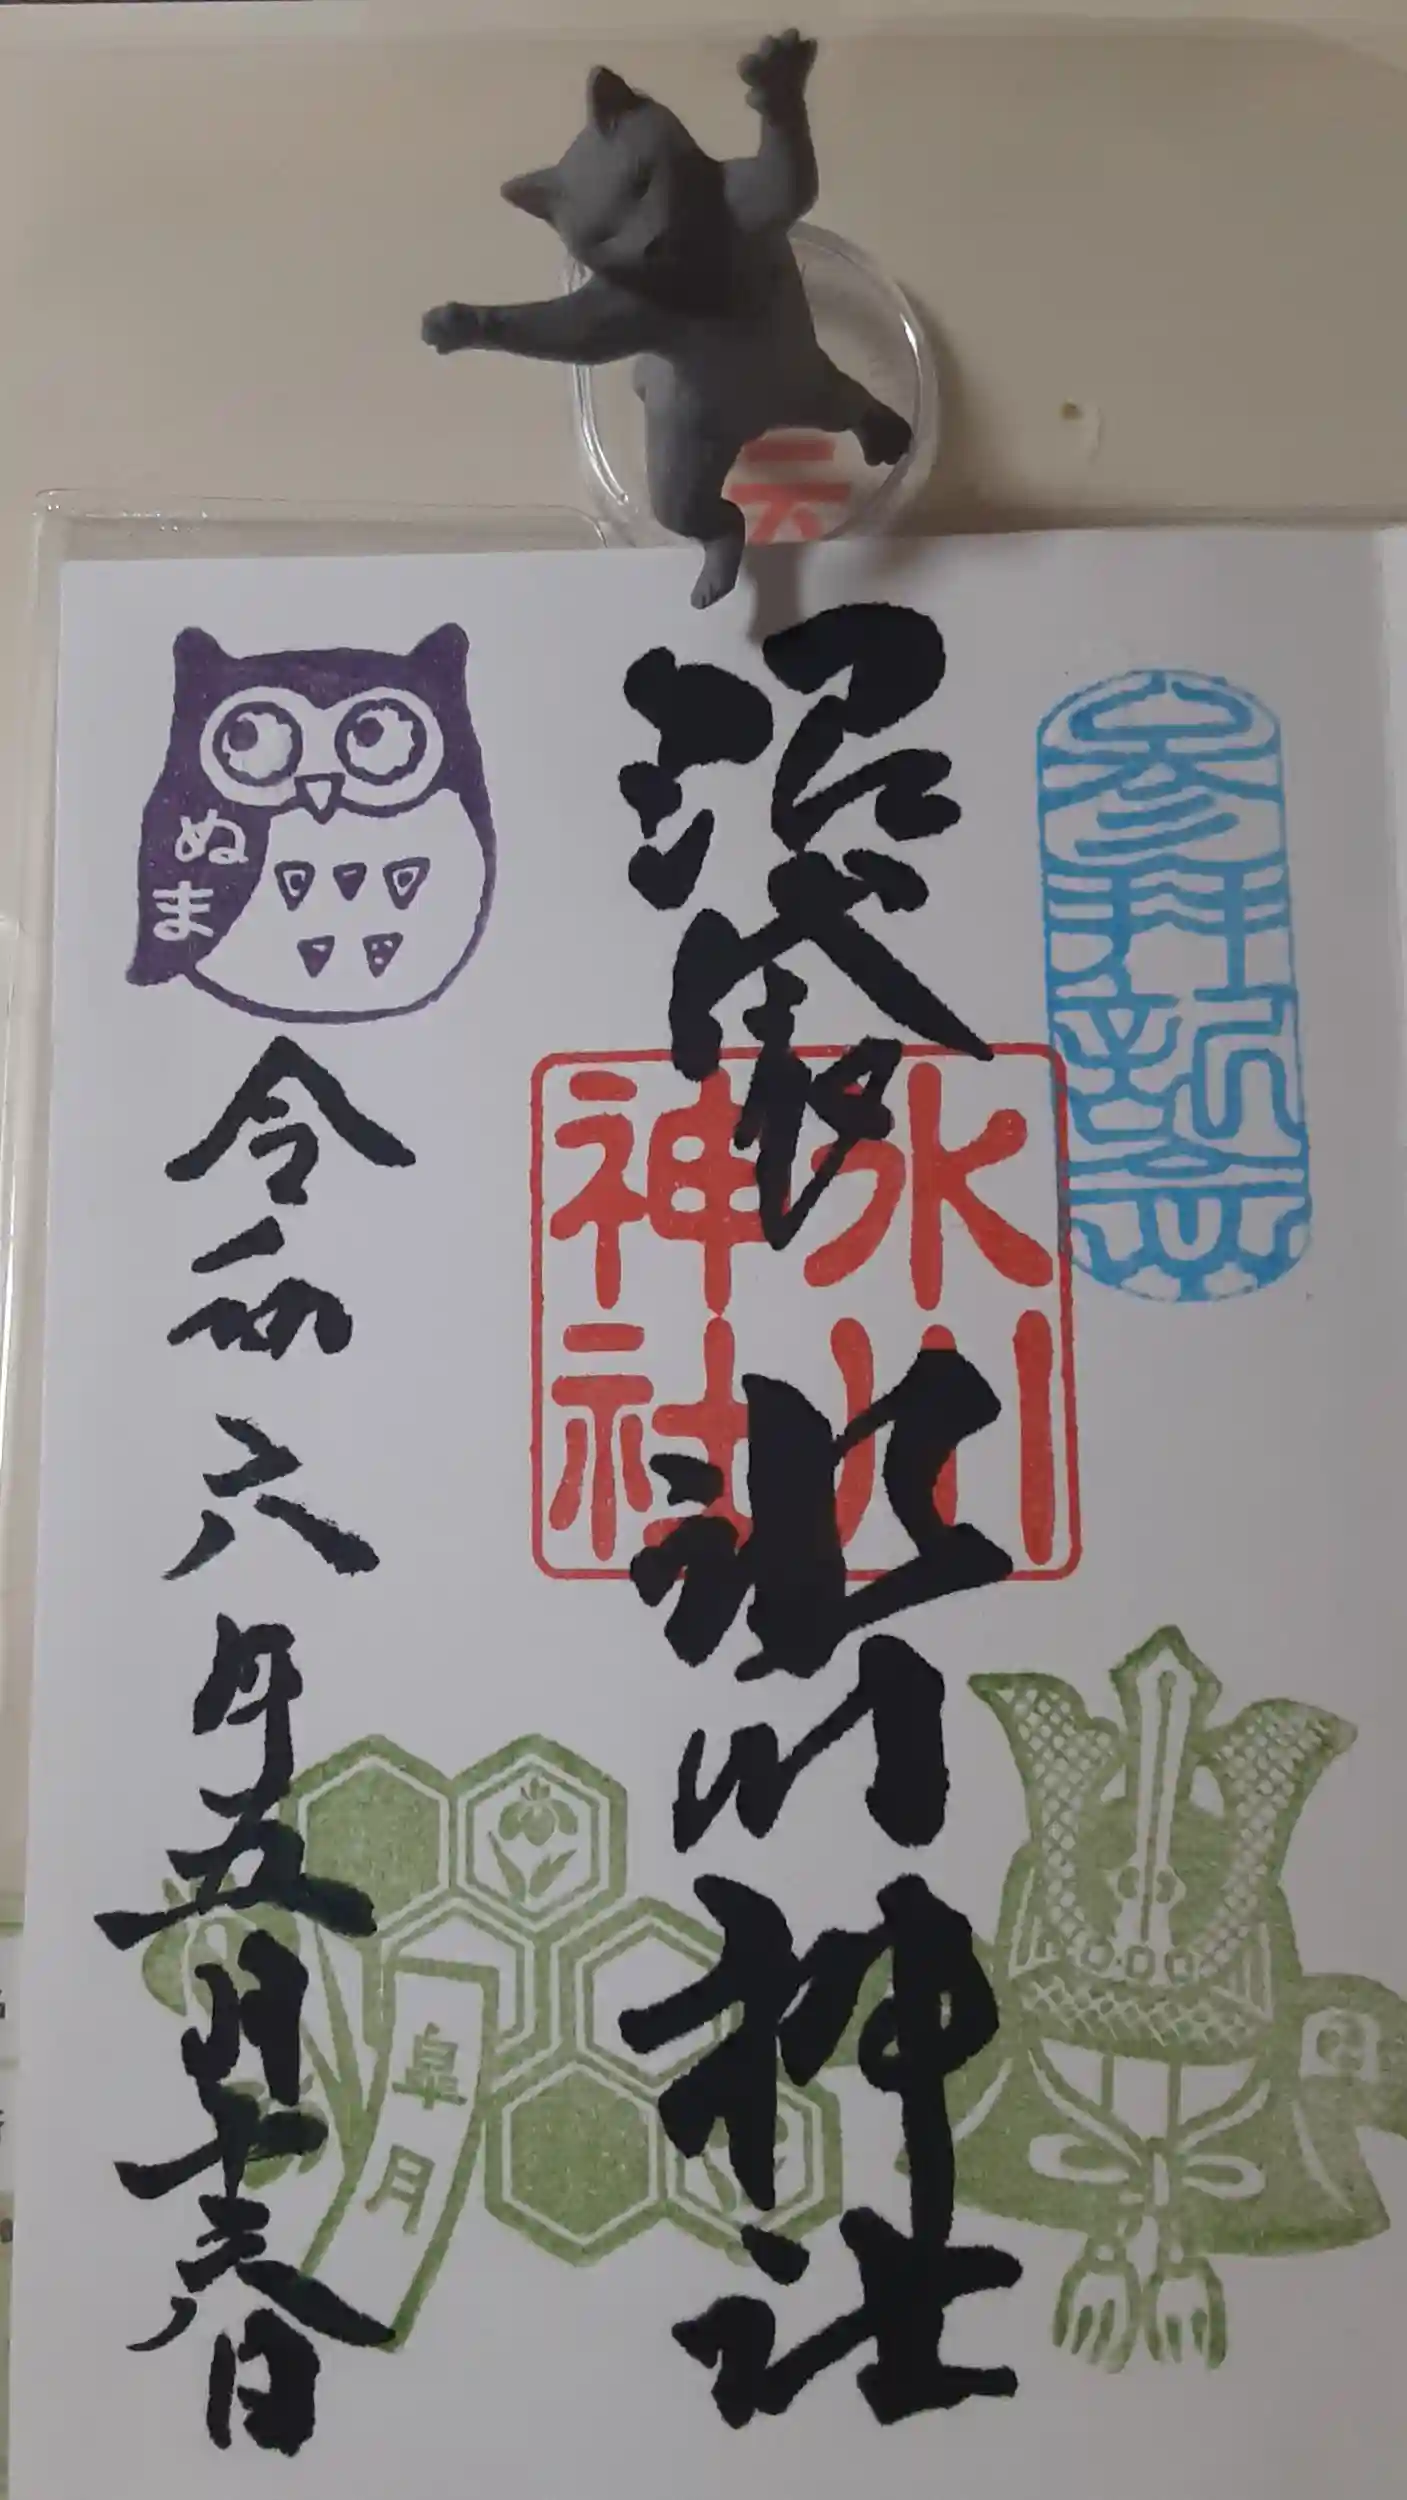 参拝
沼袋
氷川神社
氷川
神社
ぬま
令和六年五月十六日
皐月